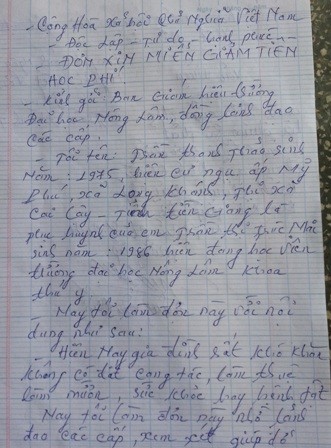 - Cộng Hòa Xã hội Chủ Nghĩa Việt Nam
- Độc Lập - Tự do - hạnh phúc -
- ĐƠN XIN MIỄN GIẢM TIỀN
HỌC PHÍ
- Kính gởi: Ban Giám hiệu trường
Đại học Nông Lâm, đồng lãnh đạo
các cấp.
- Tôi tên: Trần thanh Thảo sinh
Năm: 1945, hiện cư ngụ ấp Mỹ
Phú, xã Long Khánh, Thị xã
Cai Lậy - Tỉnh tiền Giang là
phụ huynh của em Trần thị Trúc Mai
sinh năm: 1986 hiện đang học viên
trường đại học Nông Lâm khoa
thú y
- Nay tôi làm đơn này với nội
dung như sau:
Hiện Nay gia đình rất khó khăn
không có đất cong tác, làm thuê
làm mướn, sức khỏe hay bệnh tật
Nay tôi làm đơn này nhờ lãnh
đạo các cấp, xem xét giúp đỡ